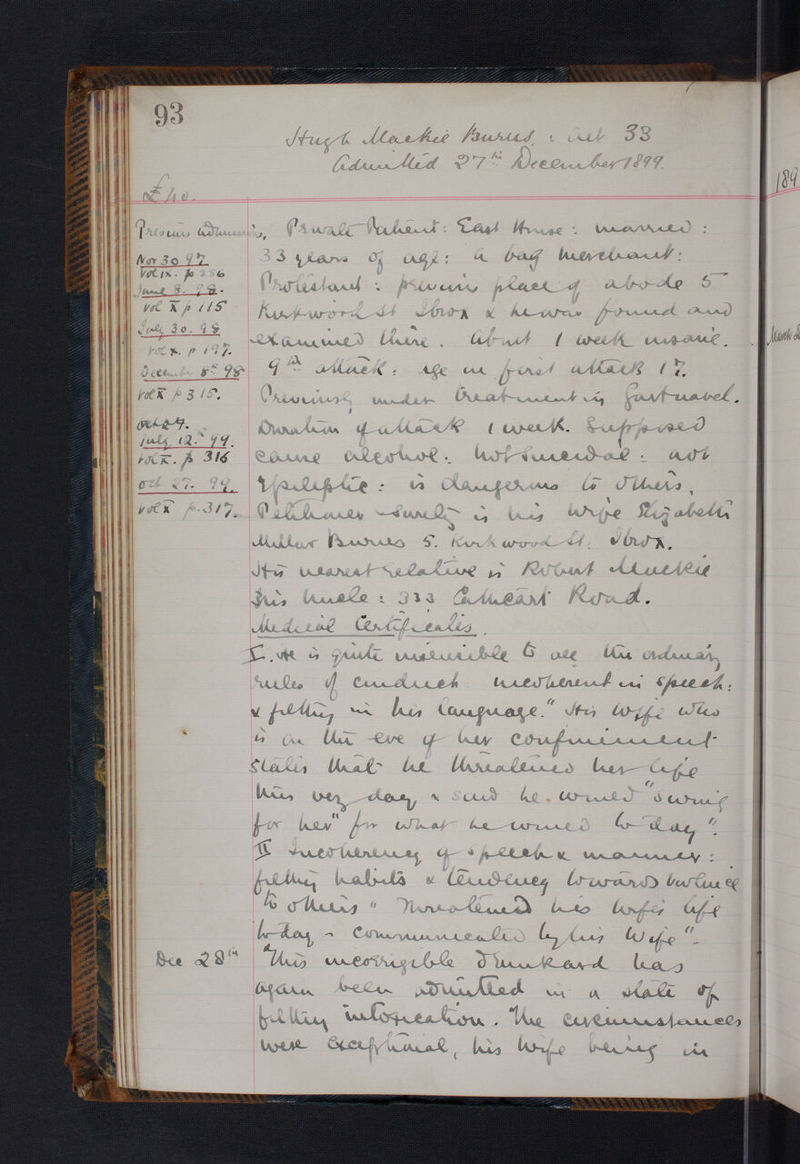 93
Hugh Mackie Burns, : aet 33
Admitted 27th December 1899.
£40.
189
Previous Admissions,
Nov 30 97
Vol IX. p 256
June 8. 98.
Vol X p 115
July 30. 98
Vol X. p 197.
December 8th 98
Vol X p 315.
July 12th 99.
Vol X. p 316
Oct 27. 99.
Vol X p. 317.
Private Patient: East House: married:
33 years of age: a bag merchant:
Protestant: previous place of abode 5
Kirkwood St Ibrox & he was found and
examined there. About 1 week insane.
9th attack: age on first attack 17.
Previously under treatment in Gartnavel.
Duration of attack 1 week. Supposed
cause alcohol. Not suicidal: not
Epileptic: is dangerous to others.
Petitioner is his wife Elizabeth
Millar Burns 5. Kirkwood St. Ibrox.
His nearest relative is Robert Mackie
his Uncle: 323 Cathcart Road.
Medical Certificates.
I. He is quite insensible to all the ordinary
rules of conduct incoherent in speech:
& filthy in his language." His wife who
is on the eve of her confinement
states that he threatened her life
this very day, & said he would "swing
for her" for what he would to day".
II Incoherency of speech & manner:
filthy habits & tendency towards violence
to others " Threatened his wife's life
to-day - communicated by his Wife".
Dec 28th
This incorrigible drunkard has
again been admitted in a state of
filthy intoxication. The circumstances
were exceptional, his wife being in